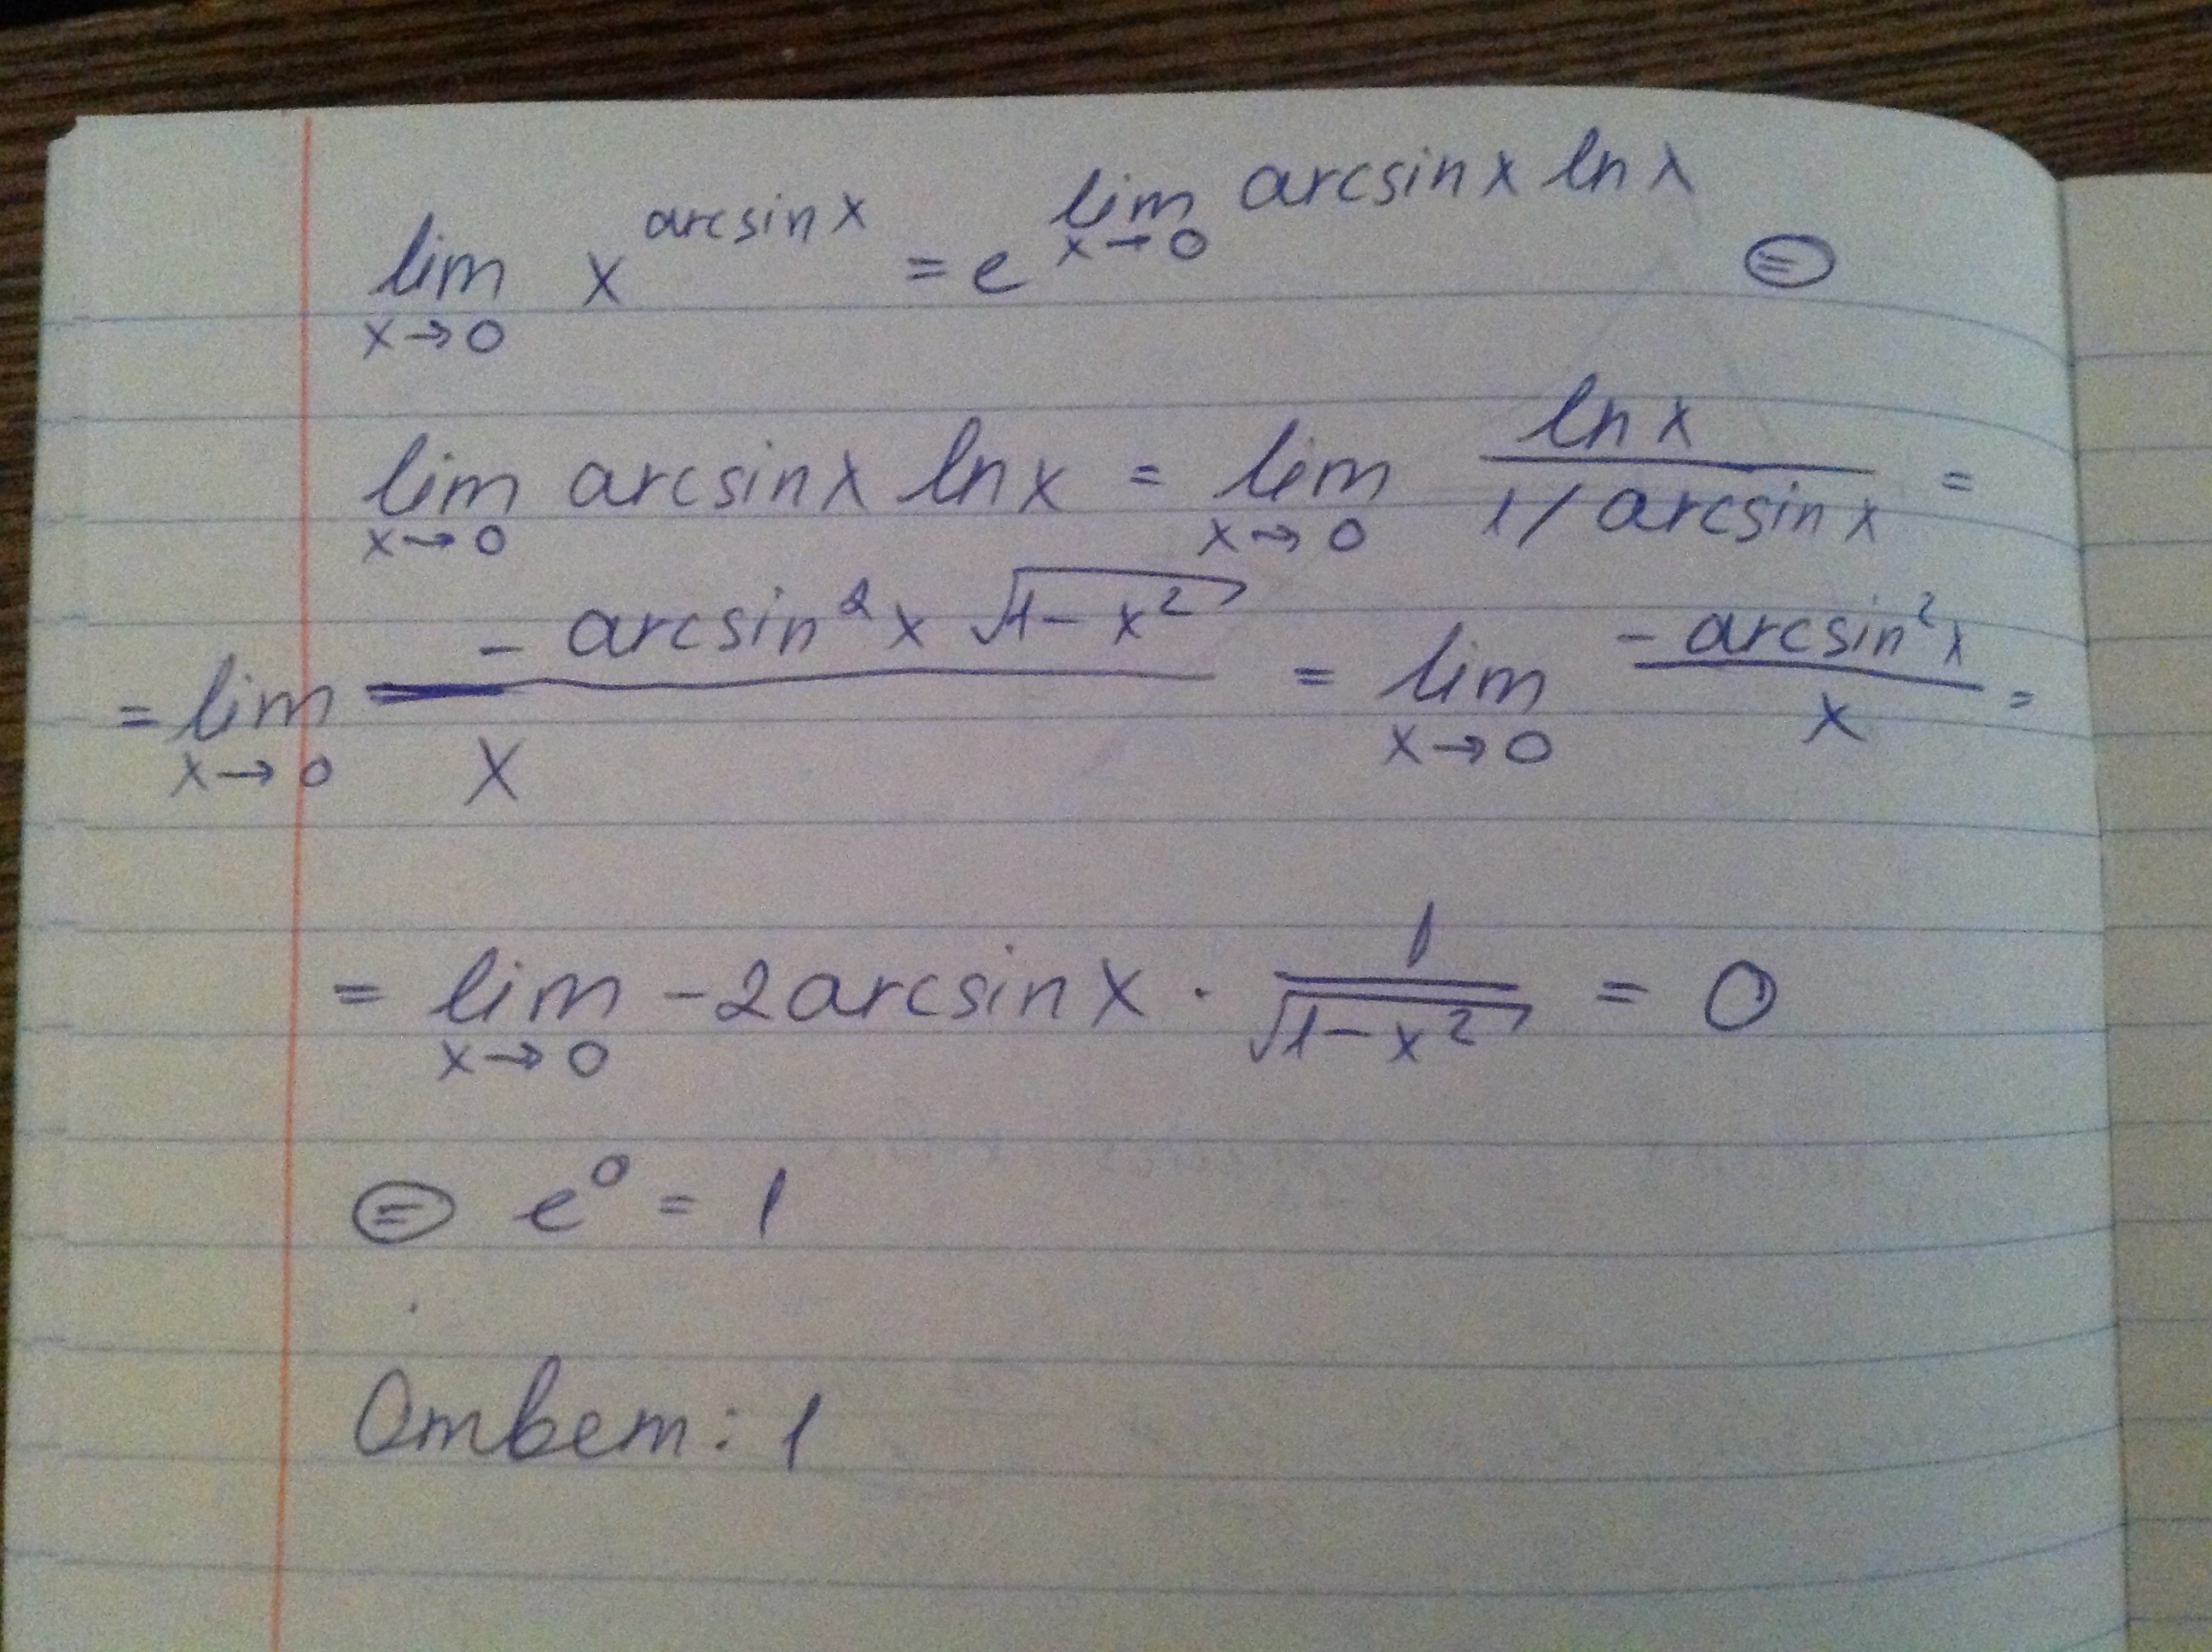 lim x→0 x^arcsin x = e^lim x→0 arcsin x ln x ⊜
lim x→0 arcsin x ln x = lim x→0 ln x / (1/arcsin x) =
= lim x→0 (- arcsin² x √(1-x²)) / x = lim x→0 (-arcsin² x) / x =
= lim x→0 -2 arcsin x · 1/√(1-x²) = 0
⊜ e⁰ = 1
Ответ: 1